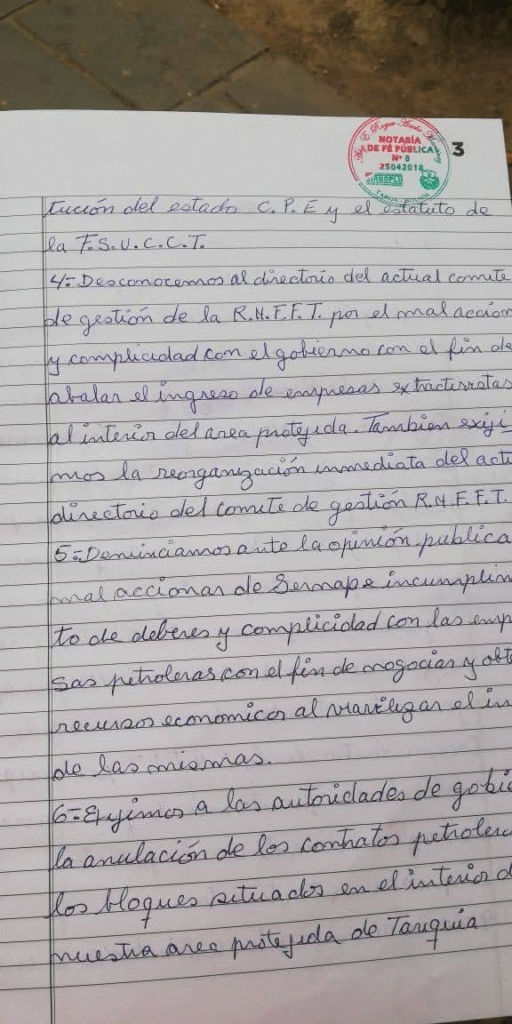 NOTARÍA
DE FE PÚBLICA
Nº 8
25042018
TARIJA - BOLIVIA
3
tución del estado C.P.E y el estatuto de
la F.S.U.C.C.T.
4=Desconocemos al directorio del actual comite
de gestión de la R.N.F.F.T. por el mal accion
y complicidad con el gobierno con el fin de
abalar el ingreso de empresas extractivistas
al interior del area protejida. Tambien exiji
mos la reorganización inmediata del actu
directorio del comite de gestión R.N.F.F.T.
5=Denunciamos ante la opinión publica
mal accionar de Sernap e incumplin
to de deberes y complicidad con las emp
sas petroleras con el fin de negocias y obt
recursos economicos al viavilizar el in
de las mismas.
6=Exijimos a las autoridades de gobie
la anulación de los contratos petrolero
los bloques situados en el interior d
nuestra area protejida de Tariquia